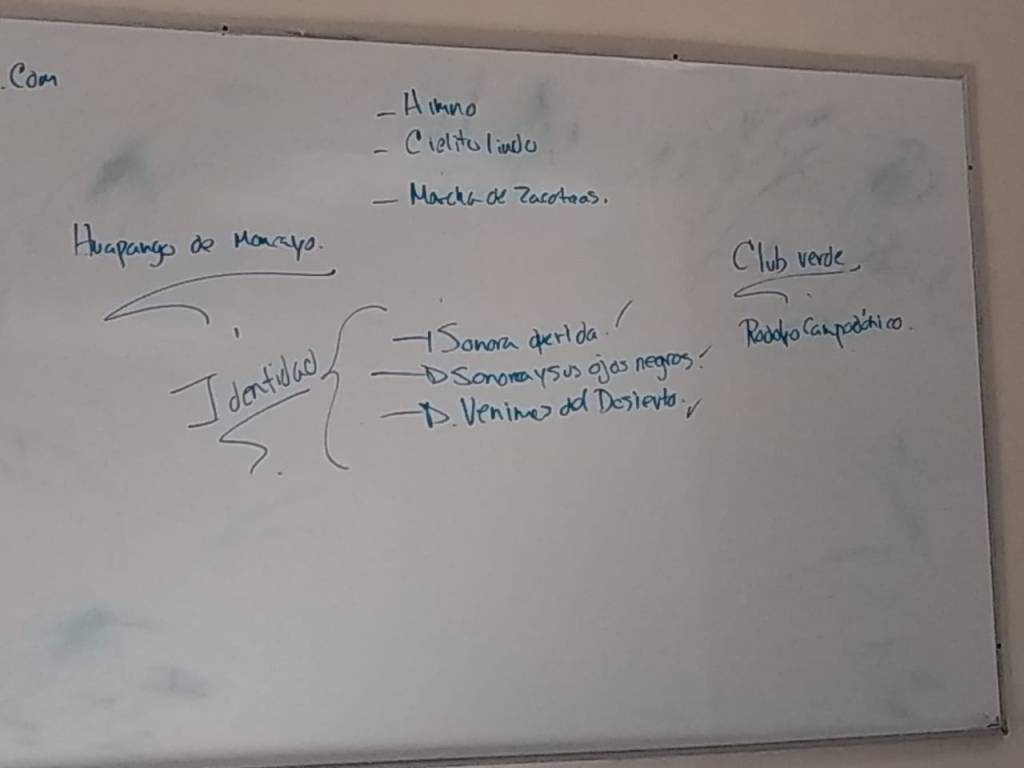 .Com
- Himno
- Cielito lindo
- Marcha de Zacatecas.
Huapango de Moncayo.
Club verde
Rodolfo Campodónico.
Identidad
Sonora querida.
Sonora y sus ojos negros.
Venimos del Desierto.